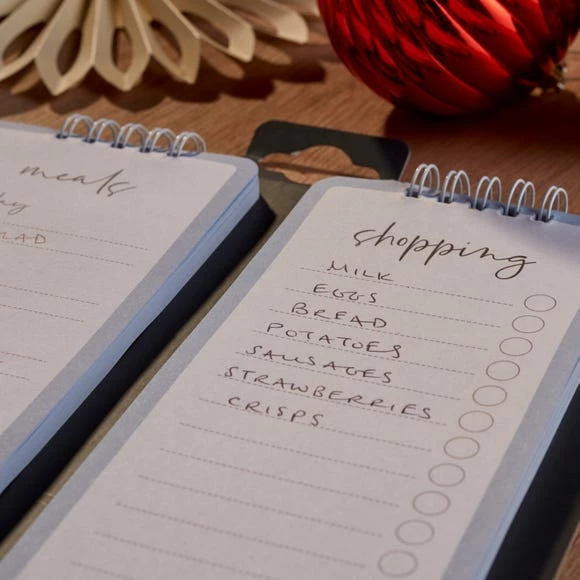 meals
shopping
MILK
EGGS
BREAD
POTATOES
SAUSAGES
STRAWBERRIES
CRISPS